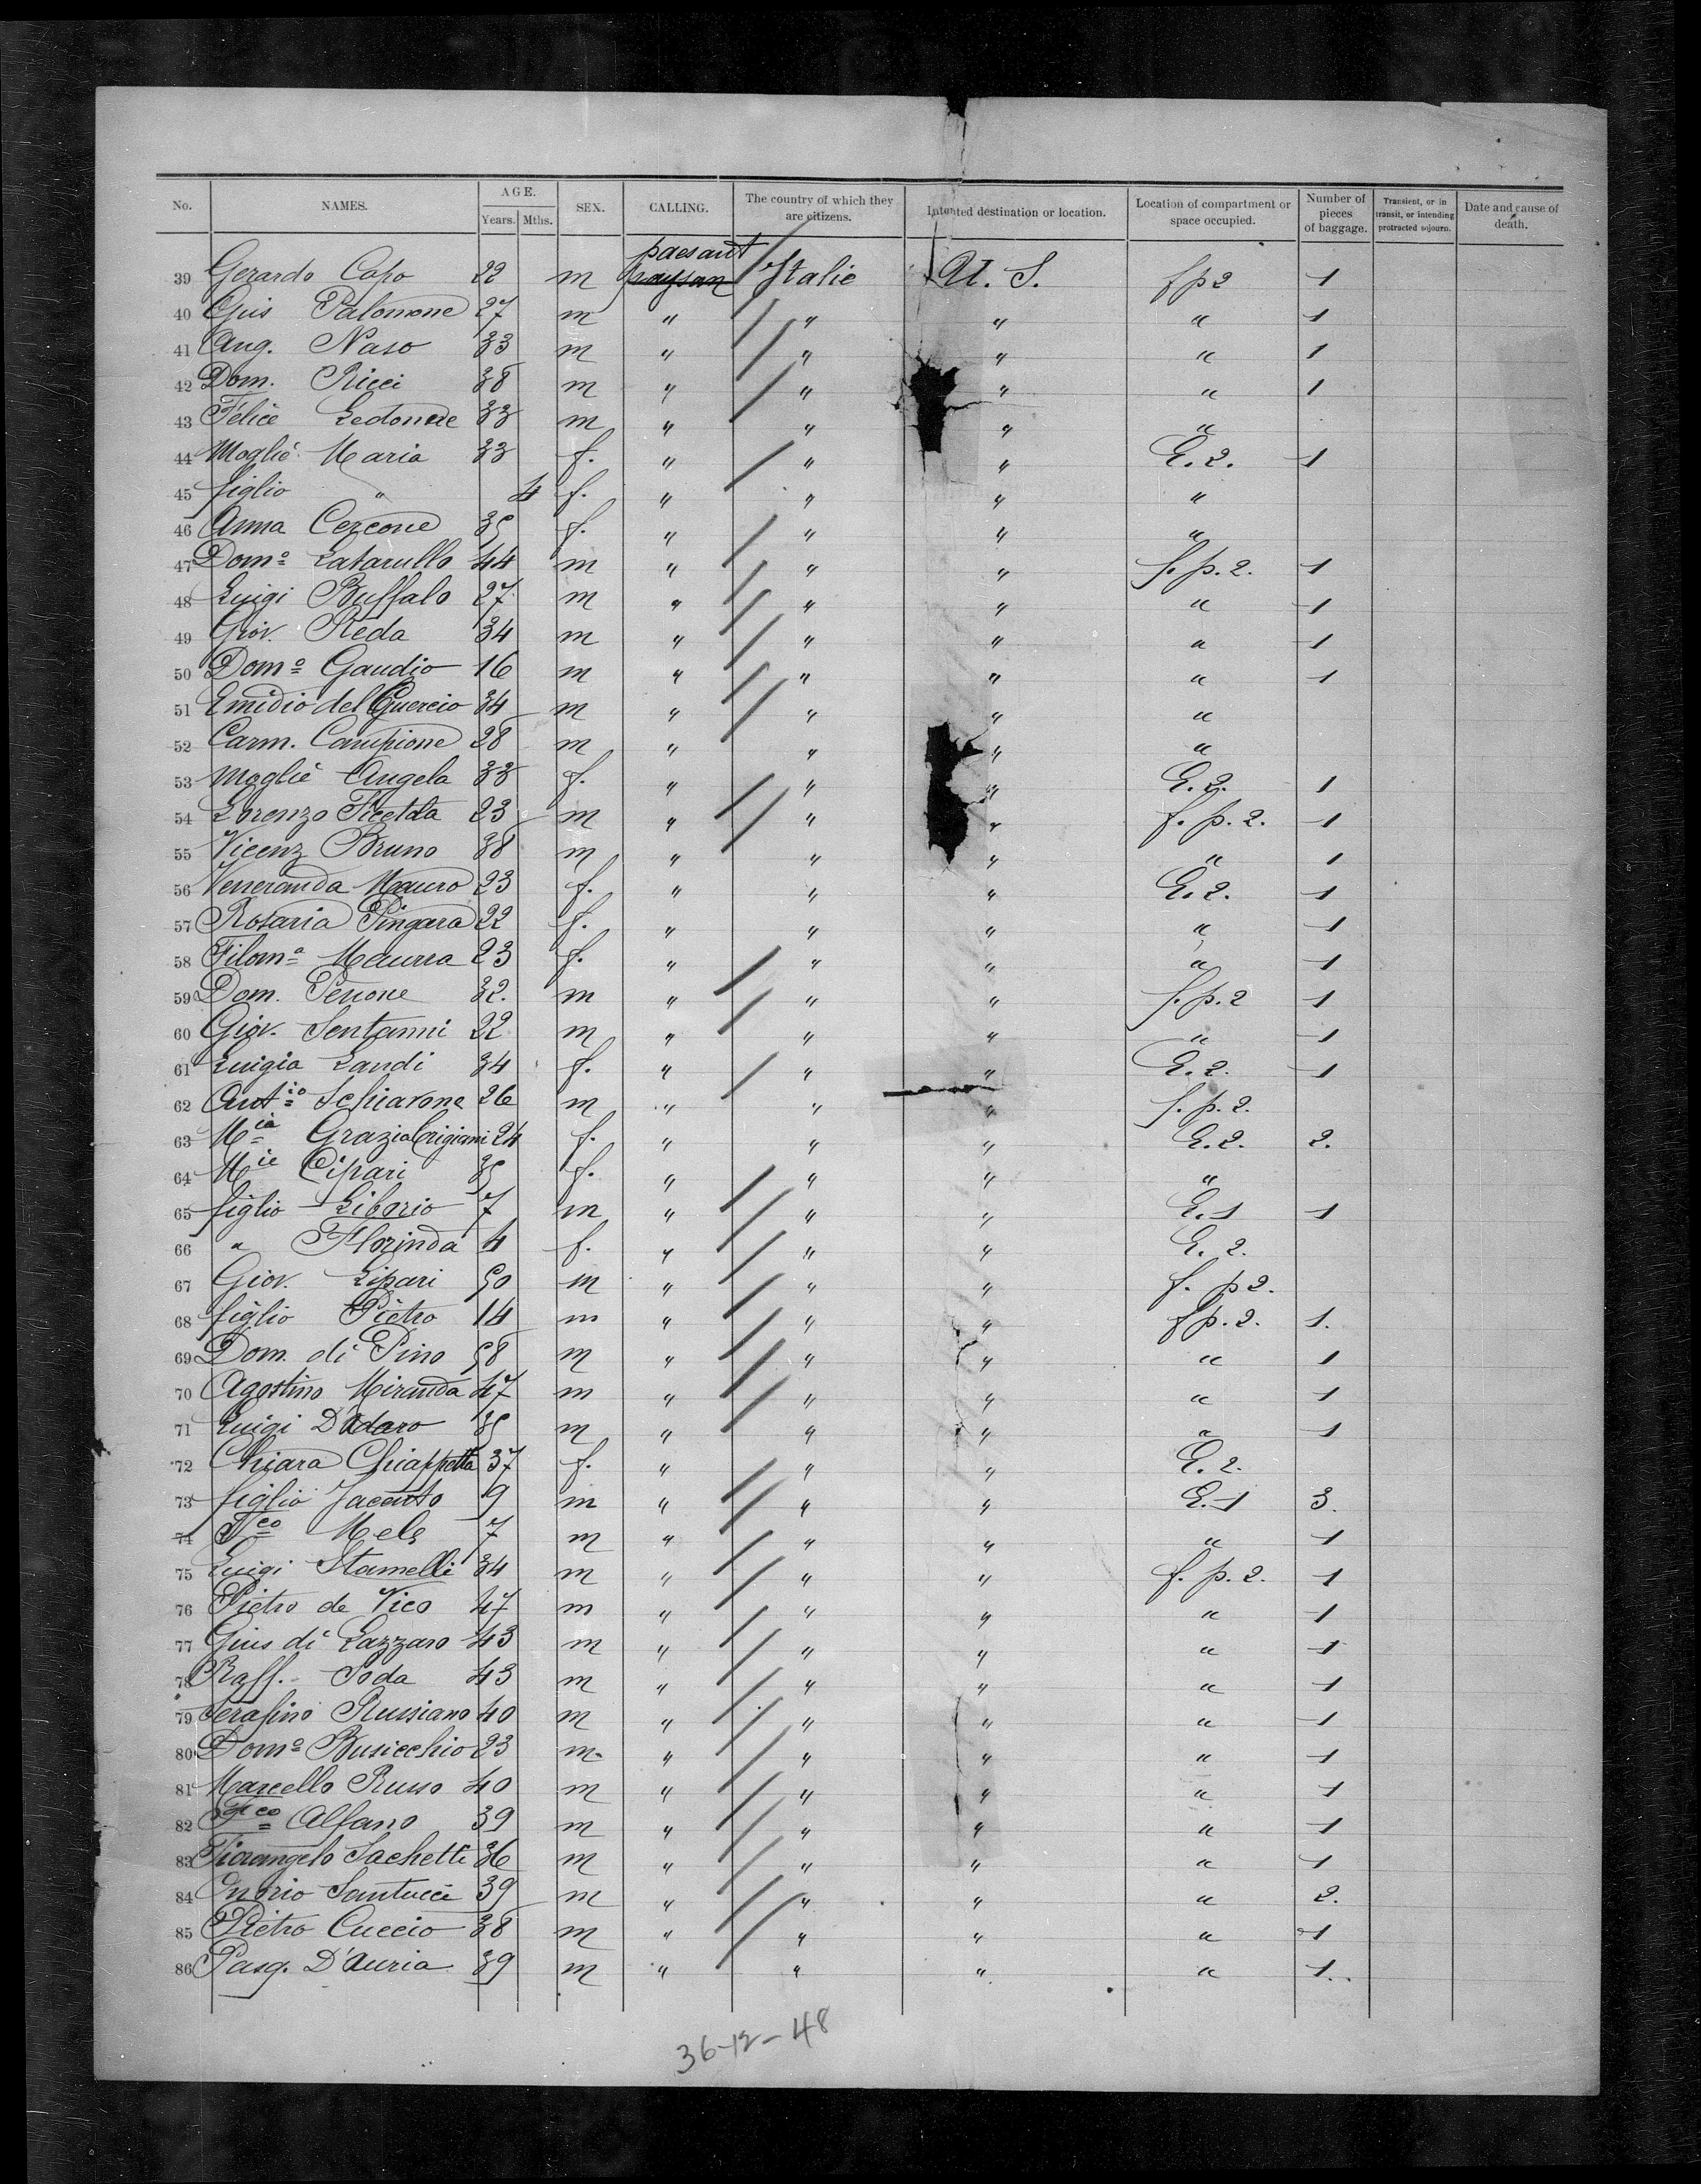 No. NAMES. AGE. Years. Mths. SEX. CALLING. The country of which they are citizens. Intented destination or location. Location of compartment or space occupied. Number of pieces of baggage. Transient, or in transit, or intending protracted sojourn. Date and cause of death.
paesant
39 Gerardo Capo 22 m paysan Italie U. S. f p 2 1
40 Gius Palomone 27 m " " " " 1
41 Ang. Naso 33 m " " " " 1
42 Dom. Ricci 38 m " " " " 1
43 Felice 33 m " " " "
44 Moglie Maria 33 f. " " " E. 2. 1
45 figlio " 4 f. " " " "
46 Anna Cercone 35 f. " " " "
47 Domo Latarullo 44 m " " " f. p. 2. 1
48 Luigi Buffalo 27 m " " " " 1
49 Giov. Reda 34 m " " " " 1
50 Domo Gaudio 16 m " " " " 1
51 Emidio del Guercio 34 m " " " "
52 Carm. Campione 28 m " " " "
53 Moglie Angela 33 f. " " " E. 2. 1
54 Lorenzo 23 m " " " f. p. 2. 1
55 Vicenz Bruno 38 m " " " " 1
56 Veneranda Mauro 23 f. " " " E. 2. 1
57 Rosaria Pingara 22 f. " " " " 1
58 Filoma Maurra 23 f. " " " " 1
59 Dom. Perrone 32. m " " " f. p. 2 1
60 Giov. Sentanni 22 m " " " " 1
61 Luigia Landi 34 f. " " " E. 2. 1
62 Antio Schiavone 26 m " " " f. p. 2.
63 Mia Grazia Crigiani 24 f. " " " E. 2. 2.
64 Mie Cipari 35 f. " " " "
65 figlio Liborio 7 m " " " E. 1 1
66 " Florinda 4 f. " " " E. 2.
67 Giov. Lipari 50 m " " " f. p 2.
68 figlio Pietro 14 m " " " f p. 2. 1.
69 Dom. di Pino 58 m " " " " 1
70 Agostino Miranda 47 m " " " " 1
71 Luigi D'Adaro 35 m " " " " 1
72 Chiara Chiappetta 37 f. " " " E. 2.
73 figlio Jacento 9 m " " " E. 1 3.
74 Fco Mele 7 m " " " " 1
75 Luigi Stamelli 34 m " " " f. p. 2. 1
76 Pietro de Vico 47 m " " " " 1
77 Gius di Lazzaro 43 m " " " " 1
78 Raff. Soda 43 m " " " " 1
79 Serafino Russiano 40 m " " " " 1
80 Domo Busicchio 23 m " " " " 1
81 Marcello Russo 40 m " " " " 1
82 Fco Alfano 39 m " " " " 1
83 Fiorangelo Sachetti 36 m " " " " 1
84 Onorio Santucci 39 m " " " " 2.
85 Pietro Cuccio 38 m " " " " 1
86 Pasq. D'Auria 39 m " " " " 1.
36-12-48